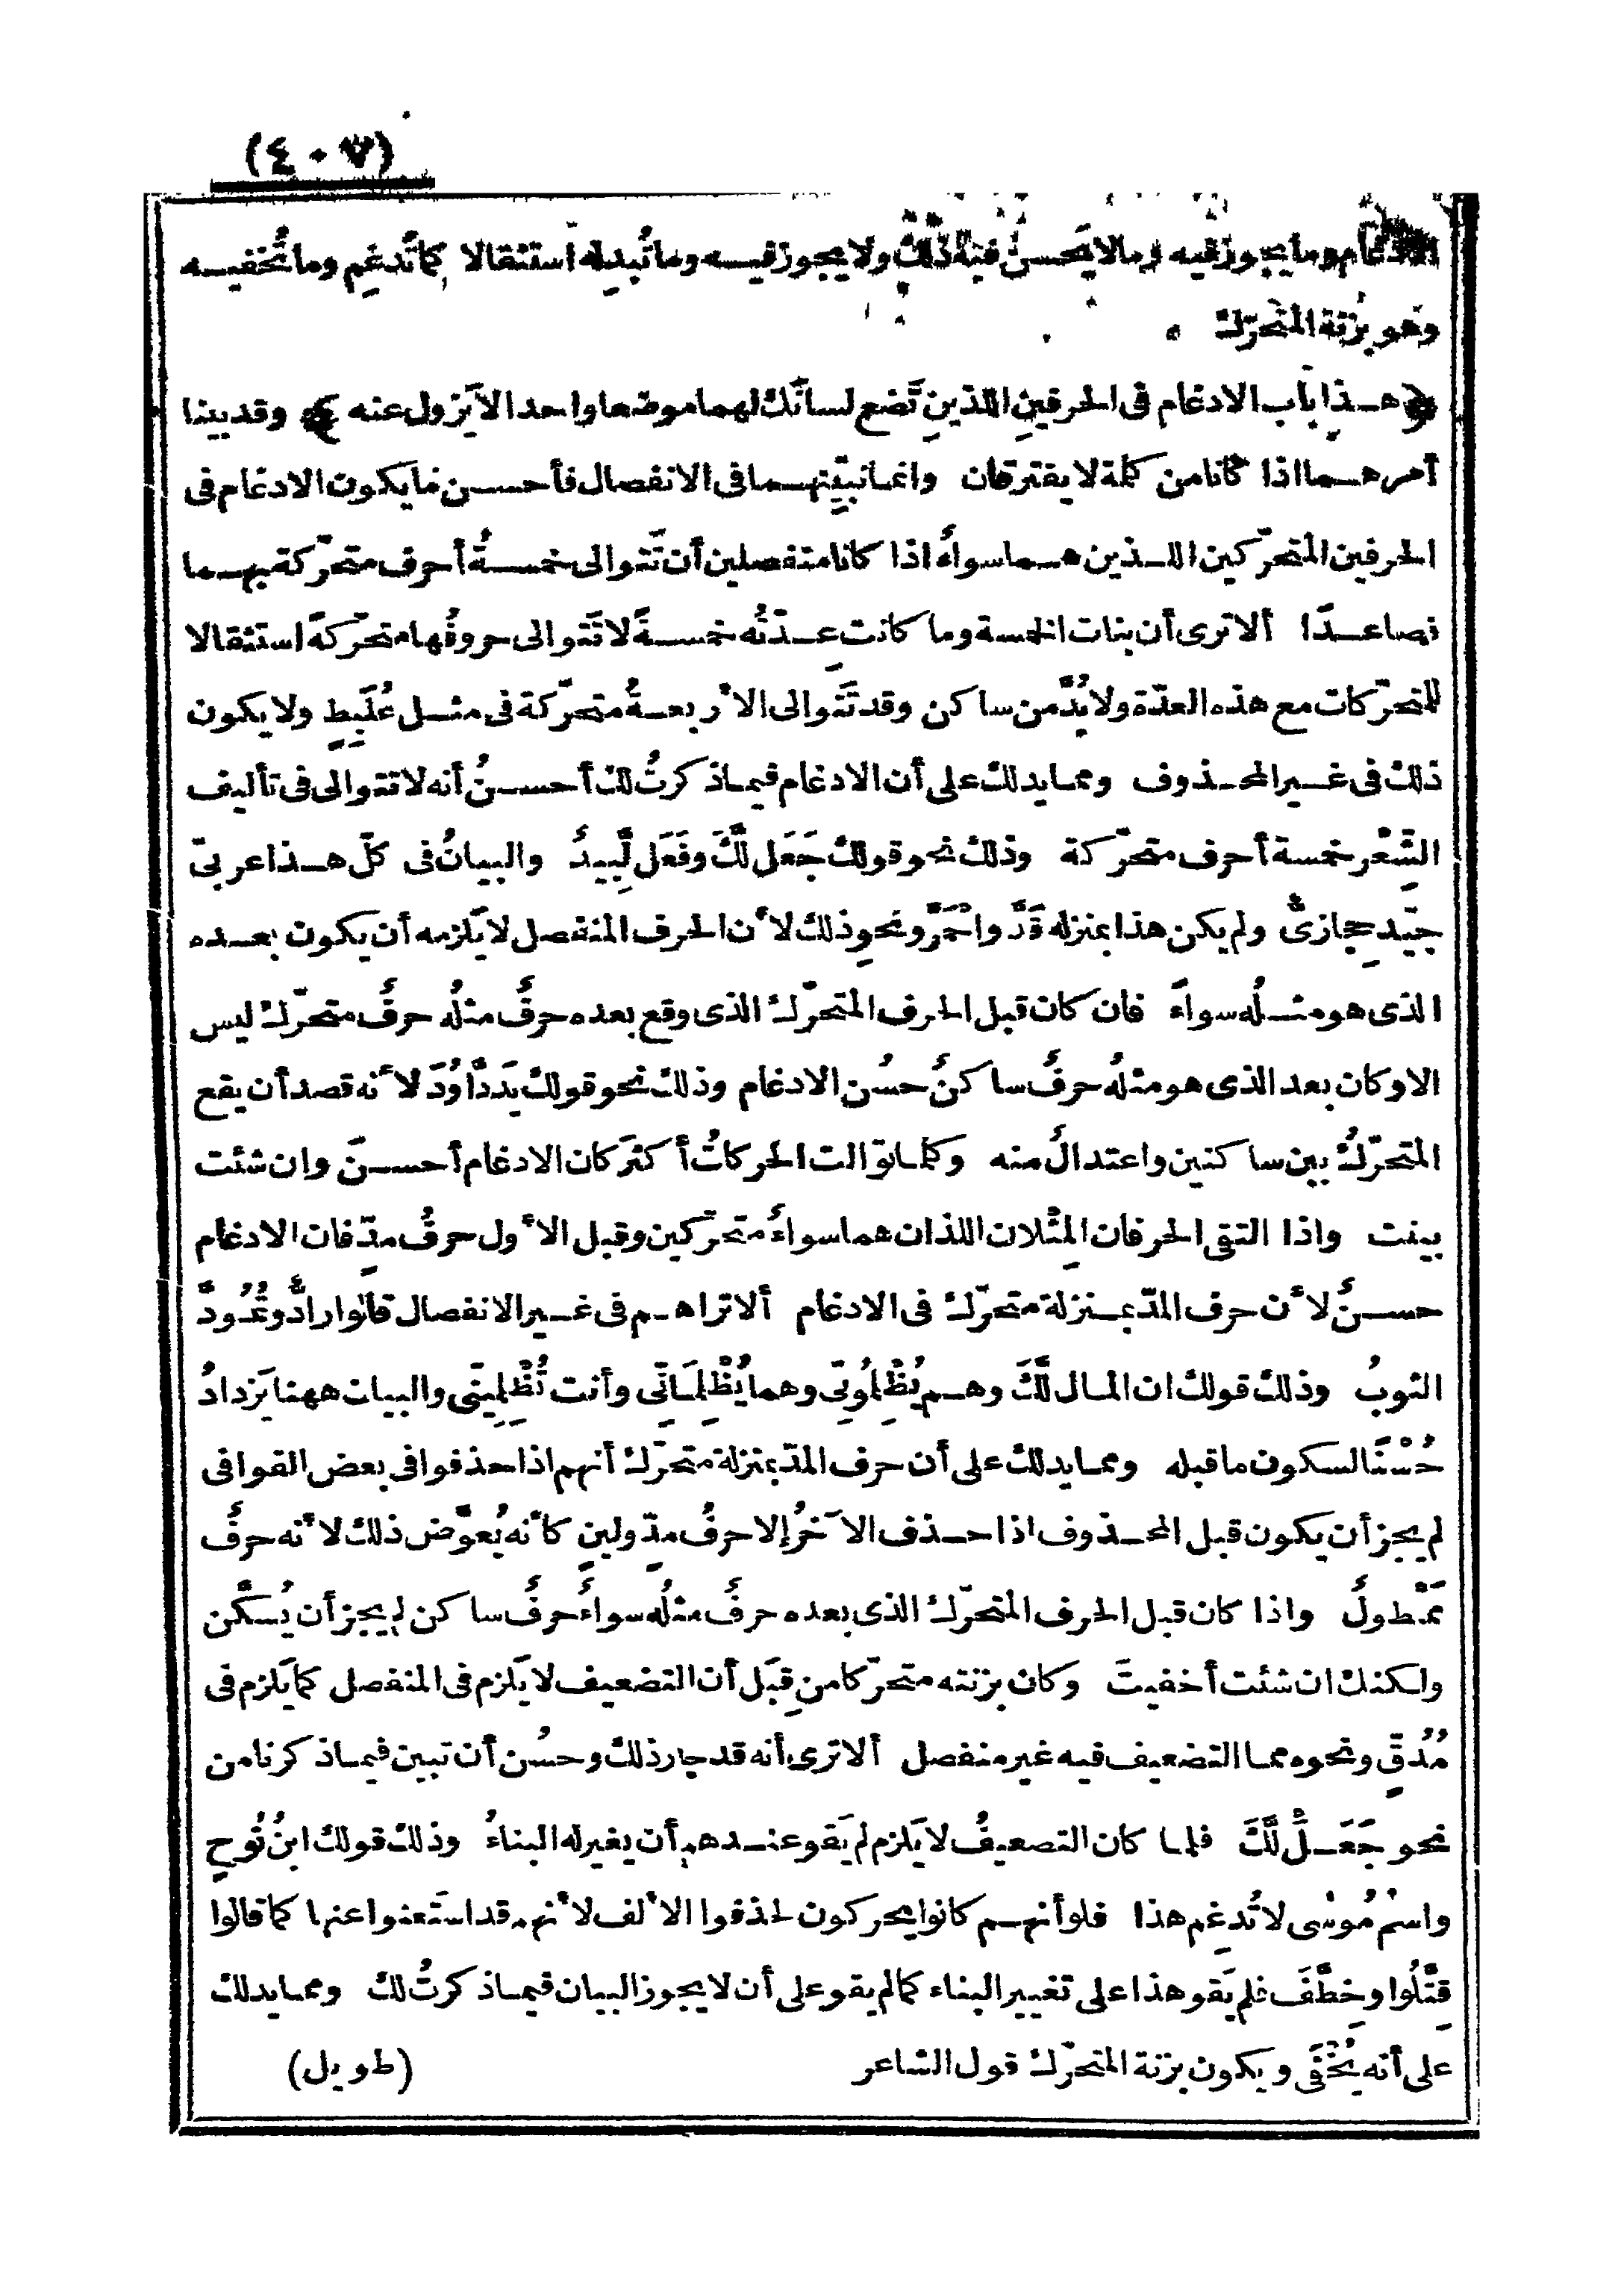 (٤٠٧)
الادغام وما يجوز فيه وما لا يَحسنُ فيه ذلك ولا يجوز فيه وما تُبدله استثقالا كما تُدغِم وما تُخفيه
وهو بزنة المتحرّك
﴿ هذا باب الادغام فى الحرفينِ اللذينِ تَضع لسانَك لهما موضعا واحدا لا يَزول عنه ﴾ وقد بينا
أمرهما اذا كانا من كلمة لا يفترقان وانما نبيّنهما فى الانفصال فأحسن ما يكون الادغام فى
الحرفين المتحرّكين اللذين هما سواءٌ اذا كانا منفصلين أن تَتوالى خمسةُ أحرف متحرّكة بهما
فصاعدًا ألا ترى أن بنات الخمسة وما كانت عِدّتُه خمسةً لا تَتوالى حروفُها متحرّكةً استثقالا
للمتحرّكات مع هذه العدّة ولا بُدَّ من ساكن وقد تَتَوالى الأربعةُ متحرّكة فى مثل عُلَبِطٍ ولا يكون
ذلك فى غير المحذوف ومما يدلك على أن الادغام فيما ذكرتُ لك أحسنُ أنه لا تتوالى فى تأليف
الشِّعْر خمسة أحرف متحرّكة وذلك نحو قولك جَعَل لَّكَ وفَعَل لَّبِيدُ والبيانُ فى كلّ هذا عربىّ
جيّد حِجازىٌّ ولم يكن هذا بمنزلة قَدَّ واحْمَرَّ ونحوِ ذلك لأن الحرف المنفصل لا يَلزمه أن يكون بعده
الذى هو مثلُه سواءً فان كان قبل الحرف المتحرّك الذى وقع بعده حرفٌ مثلُه حرفٌ متحرّك ليس
الا وكان بعد الذى هو مثلُه حرفٌ ساكنٌ حسُن الادغام وذلك نحو قولك يَد دَّاوُدَ لأنه قصد أن يقع
المتحرّكُ بين ساكنين واعتدالٌ منه وكلما توالت الحركاتُ أكثرَ كان الادغام أحسنَ وان شئت
بينت واذا التقى الحرفان المِثْلان اللذان هما سواءٌ متحرّكين وقبل الأول حرفُ مدّ فان الادغام
حسنٌ لأن حرف المدّ بمنزلة متحرّك فى الادغام ألا تراهم فى غير الانفصال قالوا رادٌّ وتُمُودَّ
الثوبُ وذلك قولك ان المال لَّكَ وهم يُظْلِمُونِّى وهما يُظْلِمانِّى وأنت تُظْلِمِينِّى والبيان ههنا يَزدادُ
حُسْنًا لسكون ما قبله ومما يدلك على أن حرف المدّ بمنزلة متحرّك أنهم اذا حذفوا فى بعض القوافى
لم يجز أن يكون قبل المحذوف اذا حذف الآخرُ إلا حرفُ مدٍّ ولينٍ كأنه يُعوَّض ذلك لأنه حرفٌ
مَمْطولٌ واذا كان قبل الحرف المتحرّك الذى بعده حرفٌ مثلُه سواءٌ حرفٌ ساكن لم يجز أن يُسكَّن
ولكنك ان شئت أخفيتَ وكان بزنته متحرّكا من قِبَل أن التضعيف لا يَلزم فى المنفصل كما يَلزم فى
مُدُقٍّ ونحوه مما التضعيف فيه غير منفصل ألا ترى أنه قد جاز ذلك وحسُن أن تبين فيما ذكرنا من
نحو جَعَلَ لَّكَ فلما كان التضعيفُ لا يَلزم لم يَقو عندهم أن يغير له البناءُ وذلك قولك ابنُ نُوحٍ
واسْمُ مُوسَى لا تُدغِم هذا فلو أنهم كانوا يحركون لحذفوا الألف لأنهم قد استَغنوا عنها كما قالوا
قِتَّلُوا وخِطَّفَ فلم يَقو هذا على تغيير البناء كما لم يقو على أن لا يجوز البيان فيما ذكرتُ لك ومما يدلك
على أنه يُخْفَى ويكون بزنة المتحرّك قول الشاعر (طويل)